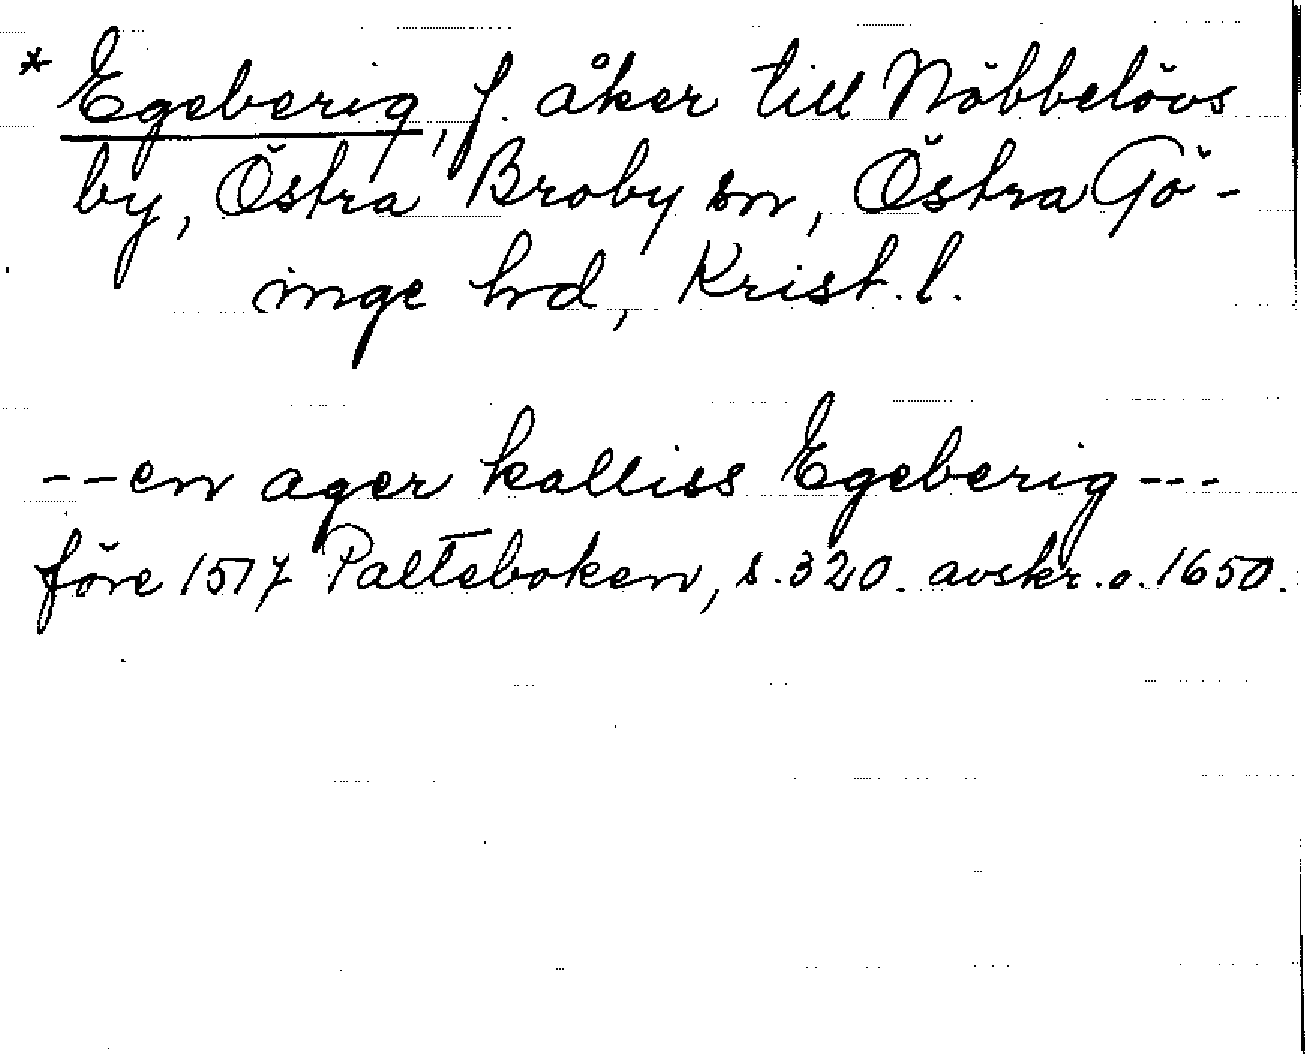 * Egeberig, f. åker till Nöbbelövs
by, Östra Broby sn, Östra Gö-
inge hd, Krist. l.
--en ager kalliss Egeberig ---
före 1517 Palteboken, s. 320. avskr. o. 1650.